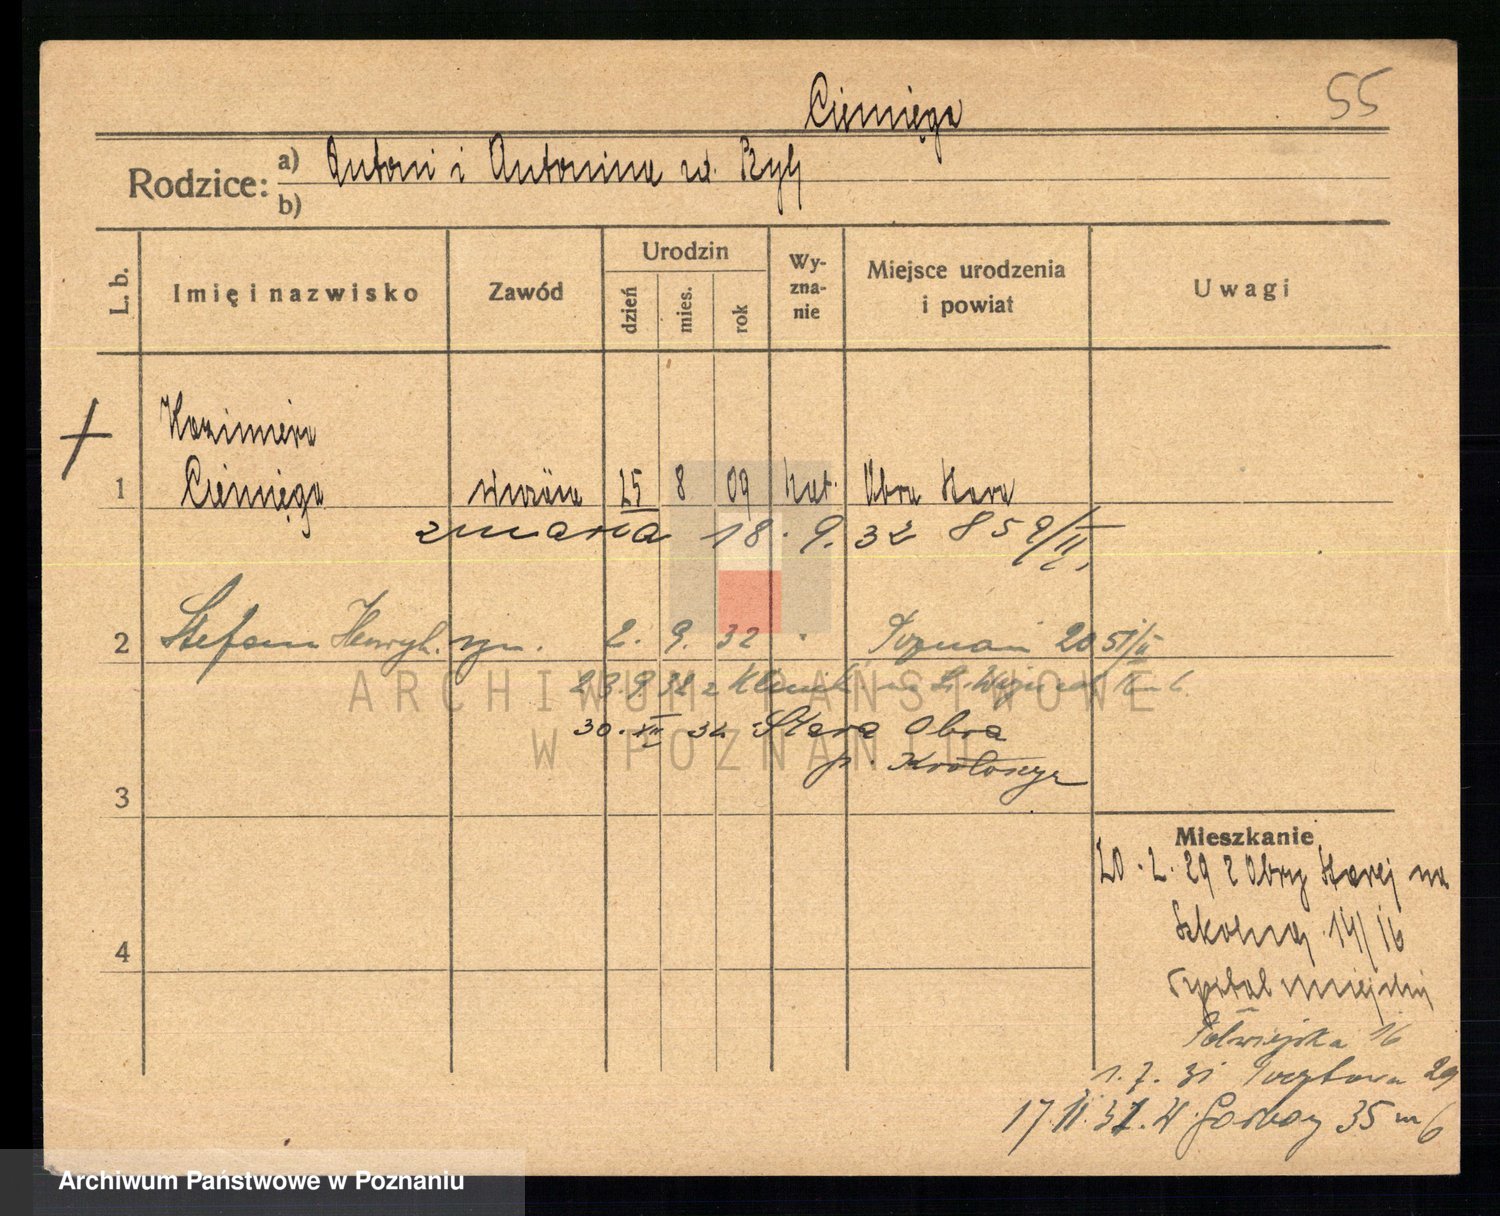 55
Ciemięga
Rodzice: a) Antoni i Antonina rd. Ryly
b)
L. b. Imię i nazwisko Zawód Urodzin dzień mies. rok Wyznanie Miejsce urodzenia i powiat Uwagi
Kazimiera
1 Ciemięga 25 8 09 kat. Obra Stara
zmarła 18. 9. 32 859/II
2 Stefan Henryk. syn. 2. 9. 32 Poznań 2051/II
23. 9. 32 z
30. XII 32 Stara Obra
p. Krotoszyn
3
Mieszkanie
20. 2. 29 z Obry Starej na
Szkolnej 14/16
4
szpital miejski
Półwiejska 16
1. 7. 31 Pocztowa 29
17. II. 32. W. Garbary 35 m 6
ARCHIWUM PAŃSTWOWE
W POZNANIU
Archiwum Państwowe w Poznaniu